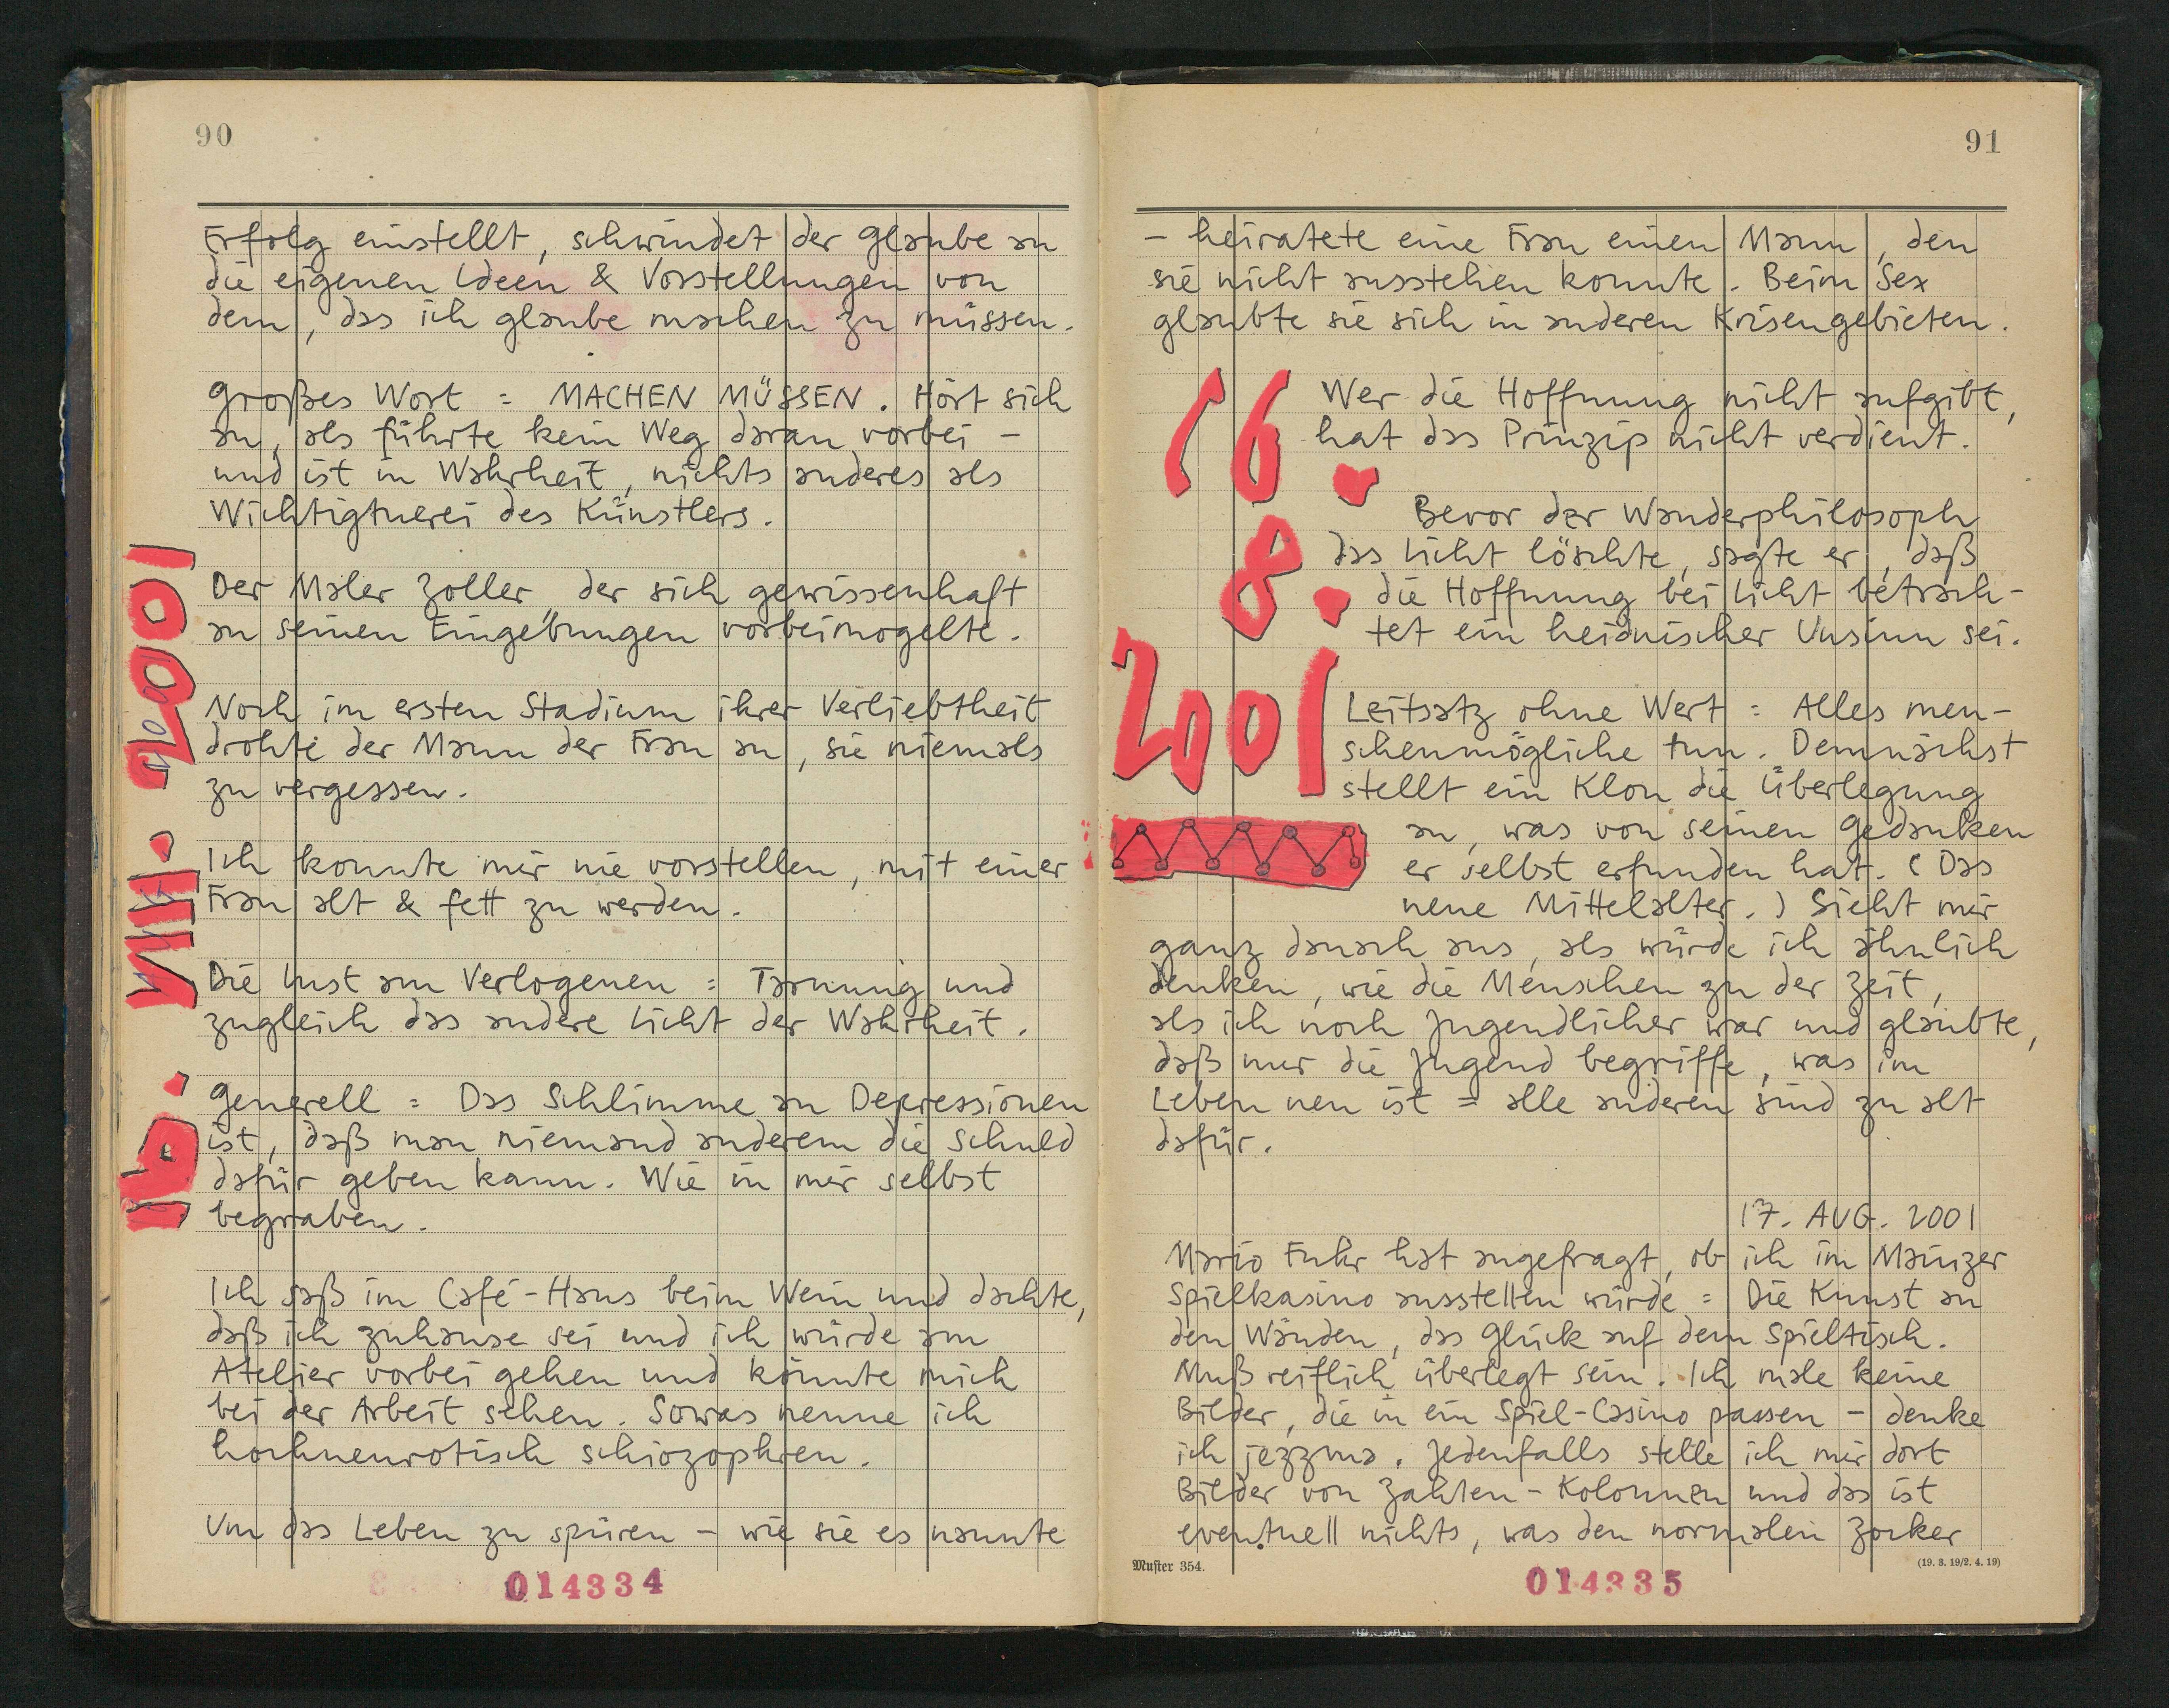 90
Erfolg einstellt, schwindet der Glaube an
die eigenen Ideen & Vorstellungen von
dem, das ich glaube machen zu müssen.
Großes Wort = MACHEN MÜSSEN. Hört sich
an, als führte kein Weg daran vorbei –
und ist in Wahrheit, nichts anderes als
Wichtigtuerei des Künstlers.
Der Maler Zoller, der sich gewissenhaft
an seinen Eingebungen vorbeimogelte.
Noch im ersten Stadium ihrer Verliebtheit
drohte der Mann der Frau an, sie niemals
zu vergessen.
Ich konnte mir nie vorstellen, mit einer
Frau alt & fett zu werden.
Die Lust am Verlogenen = Tarnung und
zugleich das andere Licht der Wahrheit.
Generell = Das Schlimme an Depressionen
ist, daß man niemand anderem die Schuld
dafür geben kann. Wie in mir selbst
begraben.
Ich saß im Café-Haus beim Wein und dachte,
daß ich zuhause sei und ich würde am
Atelier vorbei gehen und könnte mich
bei der Arbeit sehen. Sowas nenne ich
hochneurotisch schiozophren.
Um das Leben zu spüren – wie sie es nannte
16. VIII. 2001
014334
91
– heiratete eine Frau einen Mann, den
sie nicht ausstehen konnte. Beim Sex
glaubte sie sich in anderen Krisengebieten.
16.
8.
2001
Wer die Hoffnung nicht aufgibt,
hat das Prinzip nicht verdient.
Bevor der Wanderphilosoph
das Licht löschte, sagte er, daß
die Hoffnung bei Licht betrach-
tet ein heidnischer Unsinn sei.
Leitsatz ohne Wert = Alles men-
schenmögliche tun. Demnächst
stellt ein Klon die Überlegung
an, was von seinen Gedanken
er selbst erfunden hat. (Das
neue Mittelalter.) Sieht mir
ganz danach aus, als würde ich ähnlich
denken, wie die Menschen zu der Zeit,
als ich noch Jugendlicher war und glaubte,
daß nur die Jugend begriffe, was im
Leben neu ist = alle anderen sind zu alt
dafür.
17. AUG. 2001
Mario Fuhr hat angefragt, ob ich im Mainzer
Spielkasino ausstellen würde = Die Kunst an
den Wänden, das Glück auf dem Spieltisch.
Muß reiflich überlegt sein. Ich male keine
Bilder, die in ein Spiel-Casino passen – denke
ich jezzma. Jedenfalls stelle ich mir dort
Bilder von Zahlen-Kolonnen und das ist
eventuell nichts, was den normalen Zocker
Muster 354.
(19. 8. 19/2. 4. 19)
014335